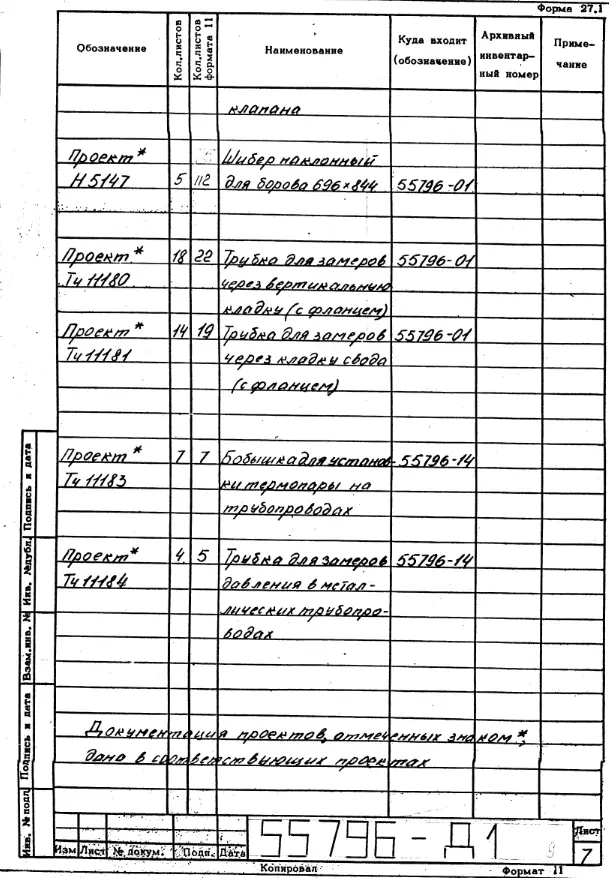 Форма 27.1
Обозначение Кол.листов Кол.листов формата 11 Наименование Куда входит (обозначение) Архивный инвентар-ный номер Приме-чание
клапана
Проект* Шибер наклонный
Н5147 5 112 для борова 696×844 55796-01
Проект* 18 22 Трубка для замеров 55796-01
Ти 11180 через вертикальную
кладку (с фланцем)
Проект* 14 19 Трубка для замеров 55796-01
Ти 11181 через кладку свода
(с фланцем)
Проект* 7 7 Бобышка для установ- 55796-14
Ти 11183 ки термопары на
трубопроводах
Проект* 4 5 Трубка для замеров 55796-14
Ти 11184 давления в метал-
лических трубопро-
водах
Документация проектов, отмеченных знаком *,
дана в соответствующих проектах
Инв. № подл. Подпись и дата Взам.инв. № Инв. №дубл. Подпись и дата
55796-Д1 9
Лист
7
Изм Лист № докум. Подп. Дата
Копировал Формат 11